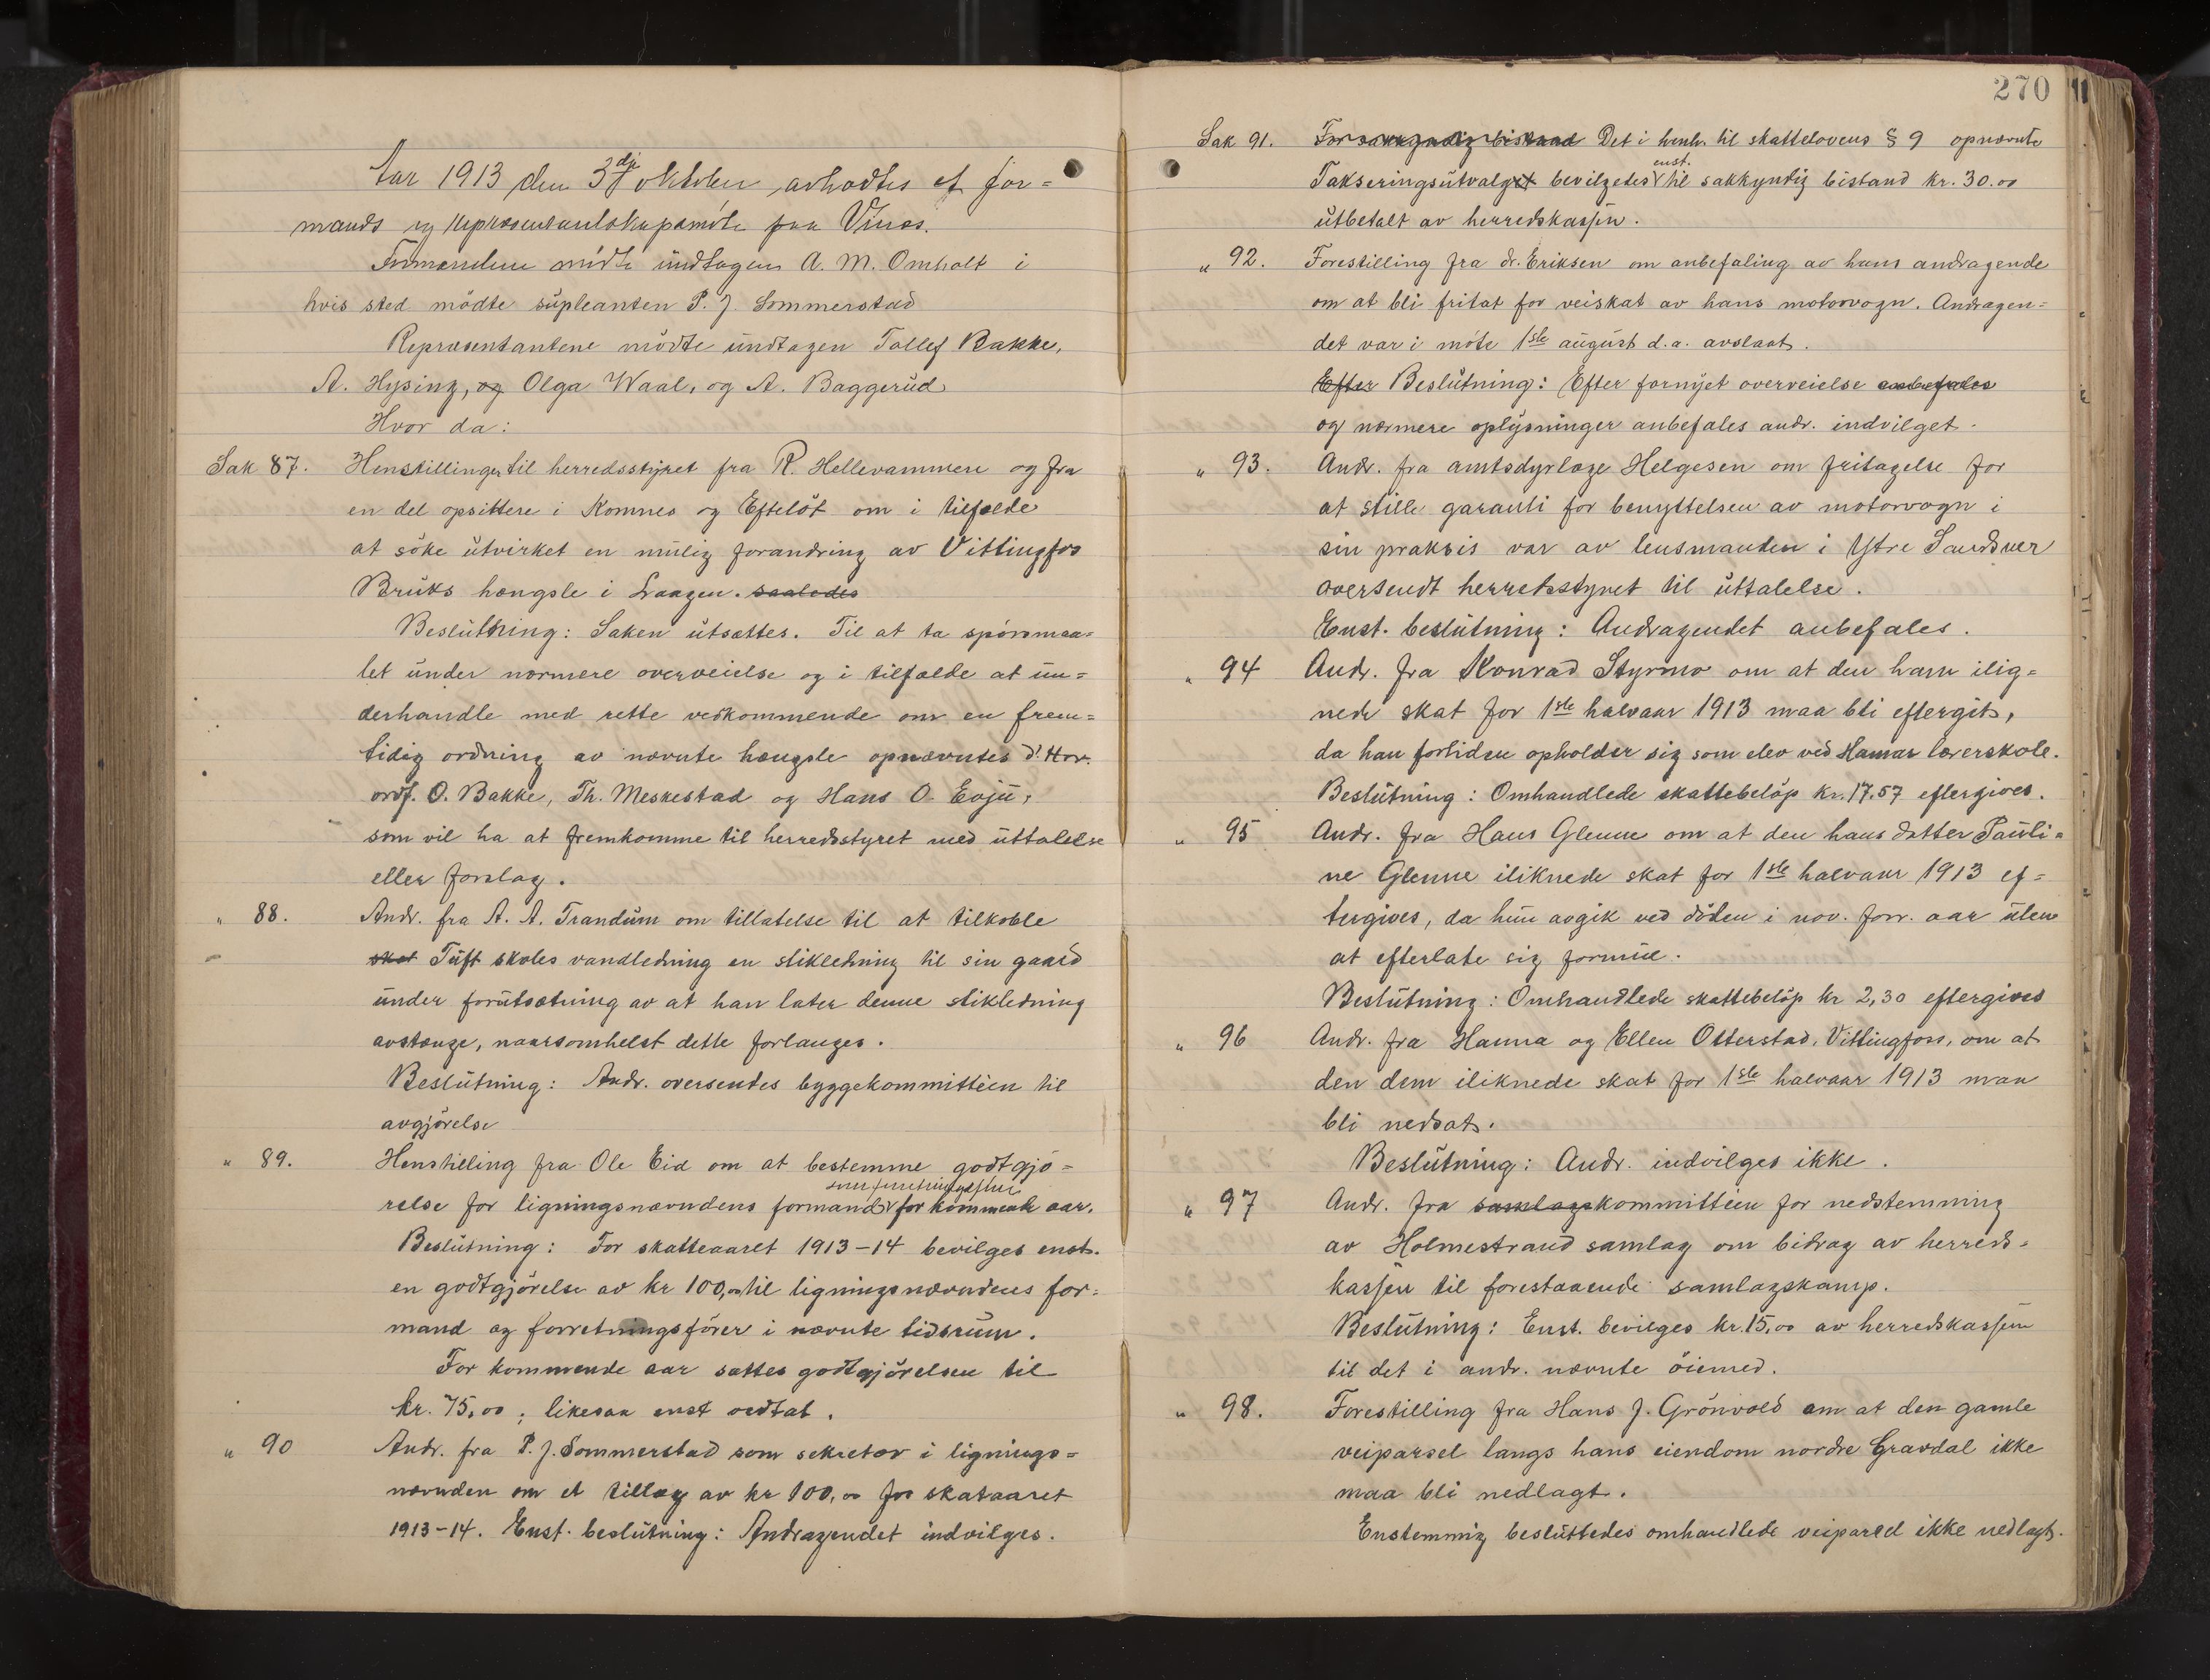 Aar 1913 den 3dje oktober avholdtes et for=
mands og repræsentantskapsmöte paa Vinæs.
Formændene mödte undtagen A. M. Omholt i
hvis sted mödte supleanten P. J. Sommerstad
Repræsentantene mödte undtagen Tollef Bakke,
A. Hysing, og Olga Waal, og A. Baggerud
Hvor da:
Sak 87. Henstillinger til herredsstyret fra R. Hellevammen og fra
en del opsittere i Komnes og Efteløt om i tilfælde
at söke utvirket en mulig forandring av Vittingfos
Bruks hængsle i Laagen. saaledes
Beslutning: Saken utsættes. Til at ta spörsmaa=
let under nærmere overveielse og i tilfælde at un=
derhandle med rette vedkommende om en frem=
tidig ordning av nævnte hængsle opnævntes d'Hrr.
ordf. O. Bakke, Th. Meskestad og Hans O. Evju,
som vil ha at fremkomme til herredsstyret med uttalelse
eller forslag.
" 88. Andr. fra A. A. Trandum om tillatelse til at tilkoble
skol Tuft skoles vandledning en stikledning til sin gaard
under forutsætning av at han later denne stikledning
avstænge, naarsomhelst dette forlanges.
Beslutning: Andr. oversendes byggekommittéen til
avgjörelse
" 89. Henstilling fra Ole Eid om at bestemme godtgjö=
som forretningsförer
relse for ligningsnævndens formand for kommende aar.
Beslutning: For skatteaaret 1913-14 bevilges enst.
en godtgjörelse av kr 100,00 til ligningsnævndens for=
mand og forretningsförer i nævnte tidsrum.
For kommende aar sættes godtgjörelsen til
kr. 75,00; likesaa enst vedtat.
" 90 Andr. fra P. J. Sommerstad som sekretær i lignings=
nævnden om et tillæg av kr 100,00 for skataaret
1913-14. Enst. beslutning: Andragendet indvilges.
270
Sak 91. For sakkyndig bistand Det i henh. til skattelovens § 9 opnævnte
enst.
Takseringsutvalget bevilgedes til sakkyndig bistand kr. 30.00
utbetalt av herredskassen.
" 92. Forestilling fra dr. Eriksen om anbefaling av hans andragende
om at bli fritat for veiskat av hans motorvogn. Andragen=
det var i möte 1ste august d.a. avslaat.
Efter Beslutning: Efter fornyet overveielse anbefales
og nærmere oplysninger anbefales andr. indvilget.
" 93. Andr. fra amtsdyrlæge Helgesen om fritagelse for
at stille garanti for benyttelsen av motorvogn i
sin praksis var av lensmanden i Ytre Sandsvær
oversendt herredsstyret til uttalelse.
Enst. beslutning: Andragendet anbefales.
" 94 Andr. fra Konrad Styrmo om at den ham ilig=
nede skat for 1ste halvaar 1913 maa bli eftergit,
da han fortiden opholder sig som elev ved Hamar lærerskole.
Beslutning: Omhandlede skattebelöp kr. 17.57 eftergives.
" 95 Andr. fra Hans Glenne om at den hans datter Pauli=
ne Glenne iliknede skat for 1ste halvaar 1913 ef=
tergives, da hun avgik ved döden i nov. forr. aar uten
at efterlate sig formue.
Beslutning: Omhandlede skattebelöp kr 2,30 eftergives
" 96 Andr. fra Hanna og Ellen Otterstad, Vittingfoss, om at
den dem iliknede skat for 1ste halvaar 1913 maa
bli nedsat.
Beslutning: Andr. indvilges ikke.
" 97 Andr. fra samlagskommittéen for nedstemming
av Holmestrand samlag om bidrag av herreds=
kassen til forestaaende samlagskamp.
Beslutning: Enst. bevilges kr. 15,00 av herredskassen
til det i andr. nævnte öiemed.
" 98. Forestilling fra Hans J. Grönvold om at den gamle
veiparsel langs hans eiendom nordre Gravdal ikke
maa bli nedlagt.
Enstemmig besluttedes omhandlede veiparsel ikke nedlagt.